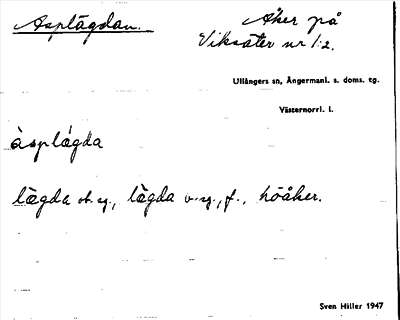 Asplägdan. Åker på
Viksäter nr 1:2.
Ullångers sn, Ångermanl. s. doms. tg.
Västernorrl. l.
àsplágda
lägda ob. sg., lägda b. sg., f., höåker.
Sven Hiller 1947